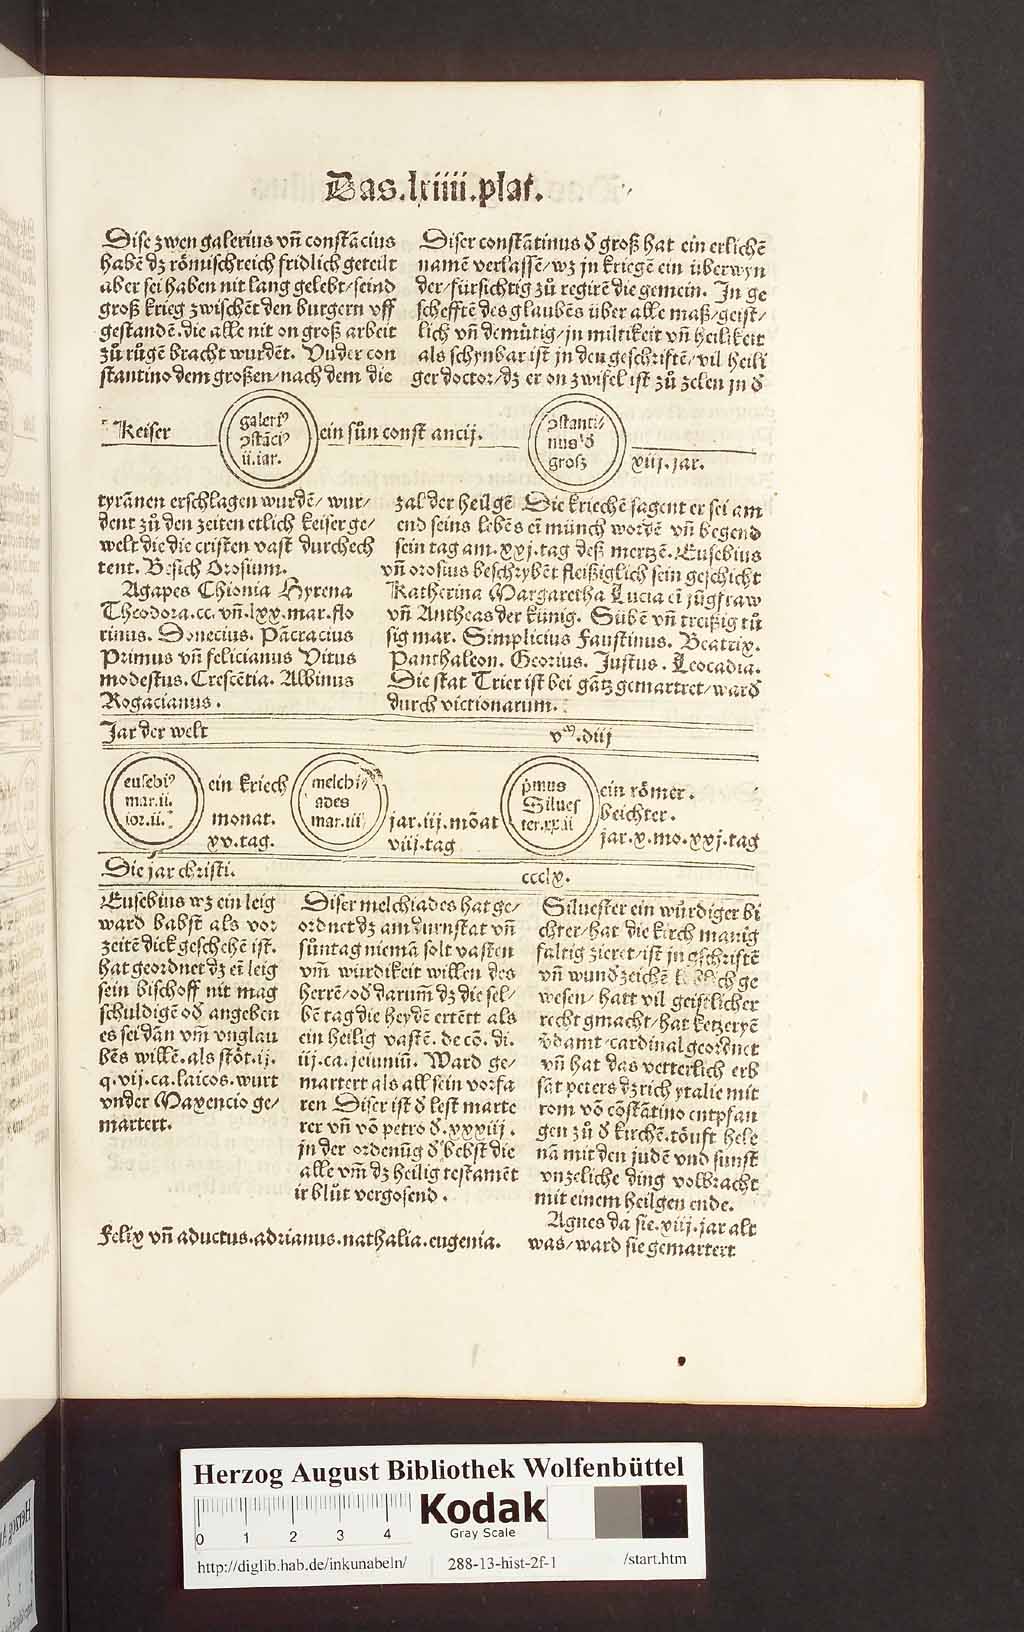 Das.lxiiii.plat.
Dise zwen galerius vñ constācius
habē dz römischreich fridlich geteilt
aber sei haben nit lang gelebt/seind
groß krieg zwischēt den burgern vff
gestandē.die alle nit on groß arbeit
zů růgē bracht wurdēt. Vnder con
stantino dem großen/nach dem die
Diser constātinus d̄ groß hat ein erlichē
namē verlassē/wz jn kriegē ein überwyn
der/fürsichtig zů regirē die gemein. In ge
schefftē des glaubēs über alle maß/geist/
lich vñ demütig/jn miltikeit vñ heilikeit
als schynbar ist jn den geschriftē/vil heili
ger doctor/dz er on zwifel ist zů zelen jn d̄
Keiser
galeriꝰ
ꝯstāciꝰ
ii.iar.
ein sůn const ancij.
ꝯstanti/
nus d̄
groß
xiij.jar.
tyrānen erschlagen wurdē/wur/
dent zů den zeiten etlich keiser ge/
welt die die cristen vast durchech
tent. Besich Orosium.
Agapes Chionia Hyrena
Theodora.cc.vñ.lxx.mar.flo
rinus. Donecius. Pācracius
Primus vñ felicianus Vitus
modestus. Crescētia. Albinus
Rogacianus.
zal der heilgē Die kriechē sagent er sei am
end seins lebēs eī münch wordē vñ begend
sein tag am.xxj.tag deß mertzē.Eusebius
vñ orosius beschrybēt fleißiglich sein geschicht
Katherina Margaretha Lucia eī jūgfraw
vñ Antheas der künig. Sübē vñ treißig tů
sig mar. Simplicius Faustinus. Beatrix.
Panthaleon. Georius. Justus. Leocadia.
Die stat Trier ist bei gātz gemartret/ward
durch victionarum.
Jar der welt
vᵐ.diij
eusebiꝰ
mar.ii.
ior.ii.
ein kriech
monat.
xv.tag.
melchi/
ades
mar.iii
jar.iij.mōat
viij.tag
p̄mus
Silues
ter.xx.ii
ein römer.
beichter.
jar.x.mo.xxj.tag
Die jar christi.
ccclx.
Eusebius wz ein leig
ward babst als vor
zeitē dick geschehē ist.
hat geordnet dz eī leig
sein bischoff nit mag
schuldigē od̄ angeben
es sei dān vm̄ vnglau
bēs willē.als stōt.ij.
q.vij.ca.laicos.wurt
vnder Maxencio ge/
martert.
Diser melchiades hat ge/
ordnet dz am durnstat vñ
sůntag niemā solt vasten
vm̄ würdikeit willen des
herrē/od̄ darum̄ dz die sel/
bē tag die heydē ertētt als
ein heilig vastē. de cō. di.
iij.ca.jeiuniū. Ward ge/
martert als all sein vorfa
ren Diser ist d̄ lest marte
rer vñ vō petro d̄.xxxiij.
jn der ordenūg d̄ bebst die
alle vm̄ dz heilig testamēt
ir blůt vergosend.
Siluester ein würdiger bi
chter/hat die kirch manig
faltig zieret/ist jn gschriftē
vñ wundzeichē ge
wesen/hatt vil geistlicher
recht gmacht/hat ketzeryē
v̄damt cardinal geordnet
vñ hat das vetterlich erb
sāt peters dz rich ytalie mit
rom vō cōstātino entpfan
gen zů d̄ kirchē.töuft hele
nā mit den judē vnd sunst
vnzeliche ding volbracht
mit einem heilgen ende.
Agnes da sie.xiij.jar alt
was/ward sie gemartert
Felix vñ aductus.adrianus.nathalia.eugenia.
Herzog August Bibliothek Wolfenbüttel
0 1 2 3 4
Kodak
Gray Scale
http://diglib.hab.de/inkunabeln/
288-13-hist-2f-1
/start.htm